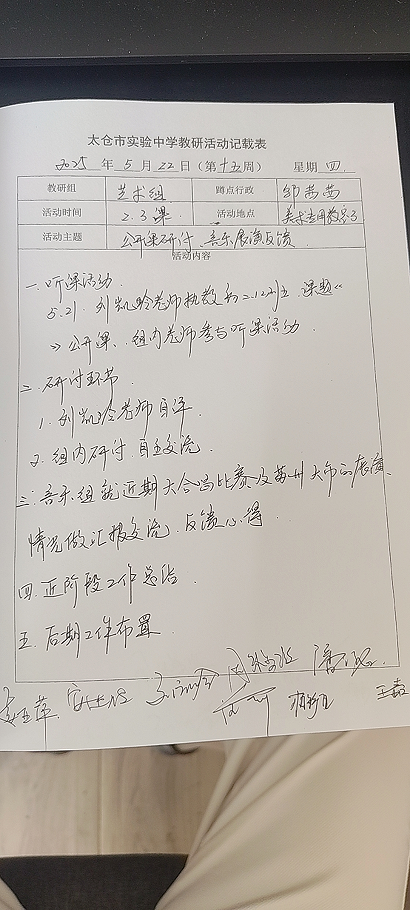 太仓市实验中学教研活动记载表
2025 年 5 月 22 日（第 十五 周） 星期 四.
教研组 艺术组 蹲点行政 邹茜茜
活动时间 2.3 课 活动地点 美术专用教室3
活动主题 公开课研讨、音乐展演反馈
活动内容
一. 听课活动.
5.21. 刘凯玲老师执教 课题《
》公开课、组内老师参与听课活动.
二. 研讨环节.
1. 刘凯玲老师自评.
2. 组内研讨 自主交流.
三. 音乐组就近期大合唱比赛及苏州大市的展演
情况做汇报交流 反馈心得.
四. 近阶段工作总结
五. 后期工作布置.